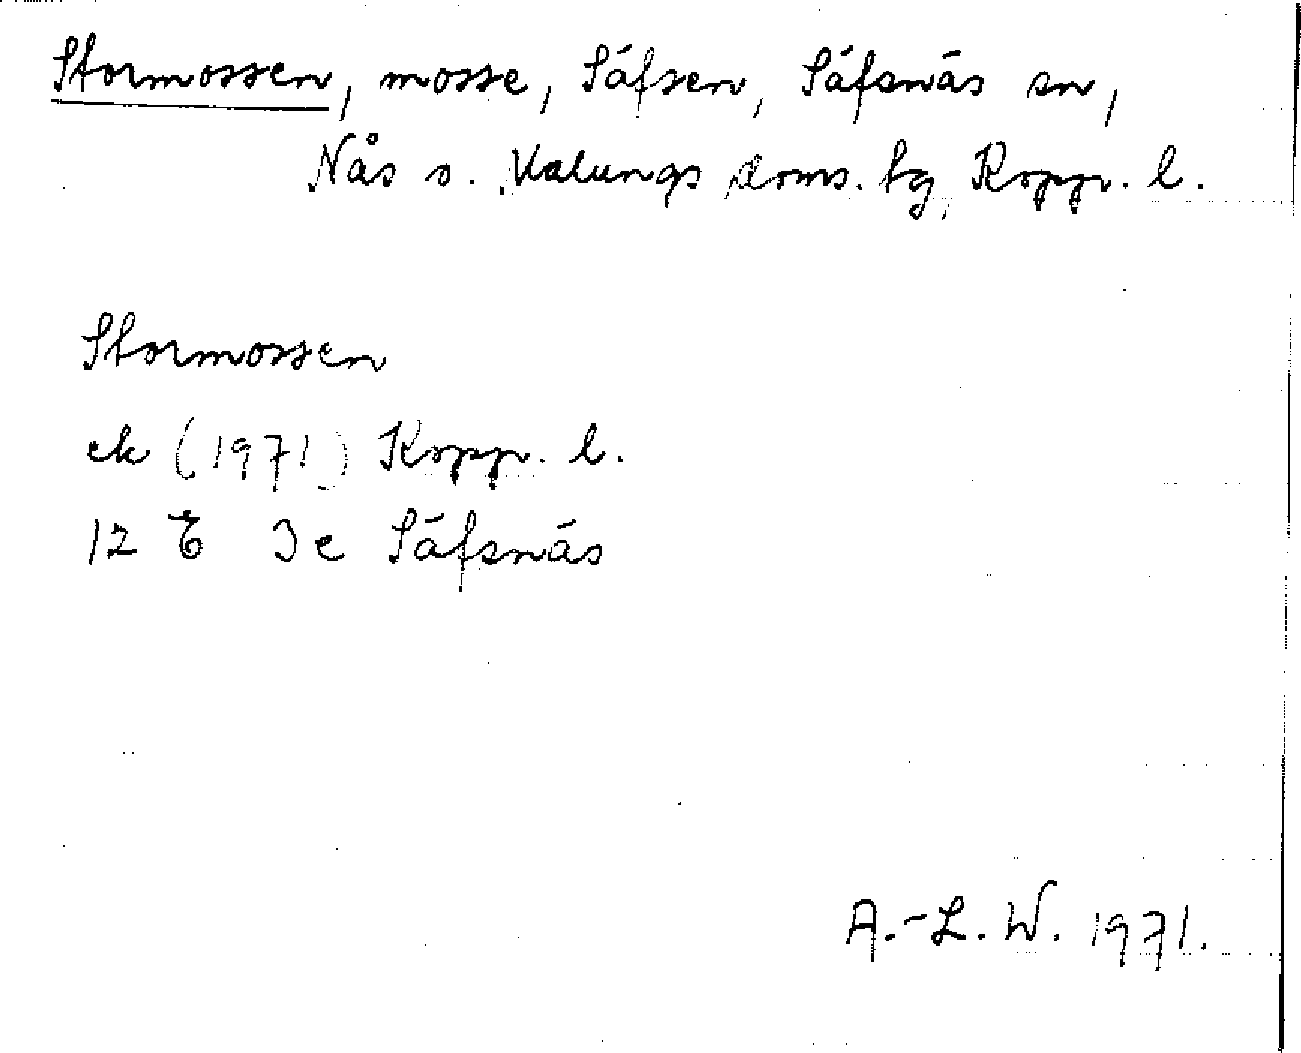 Stormossen, mosse, Säfsen, Säfsnäs sn,
Nås o. Malungs doms. tg, Kopp. l.
Stormossen
ek (1971) Kopp. l.
12 E 3e Säfsnäs
A.-L. W. 1971.